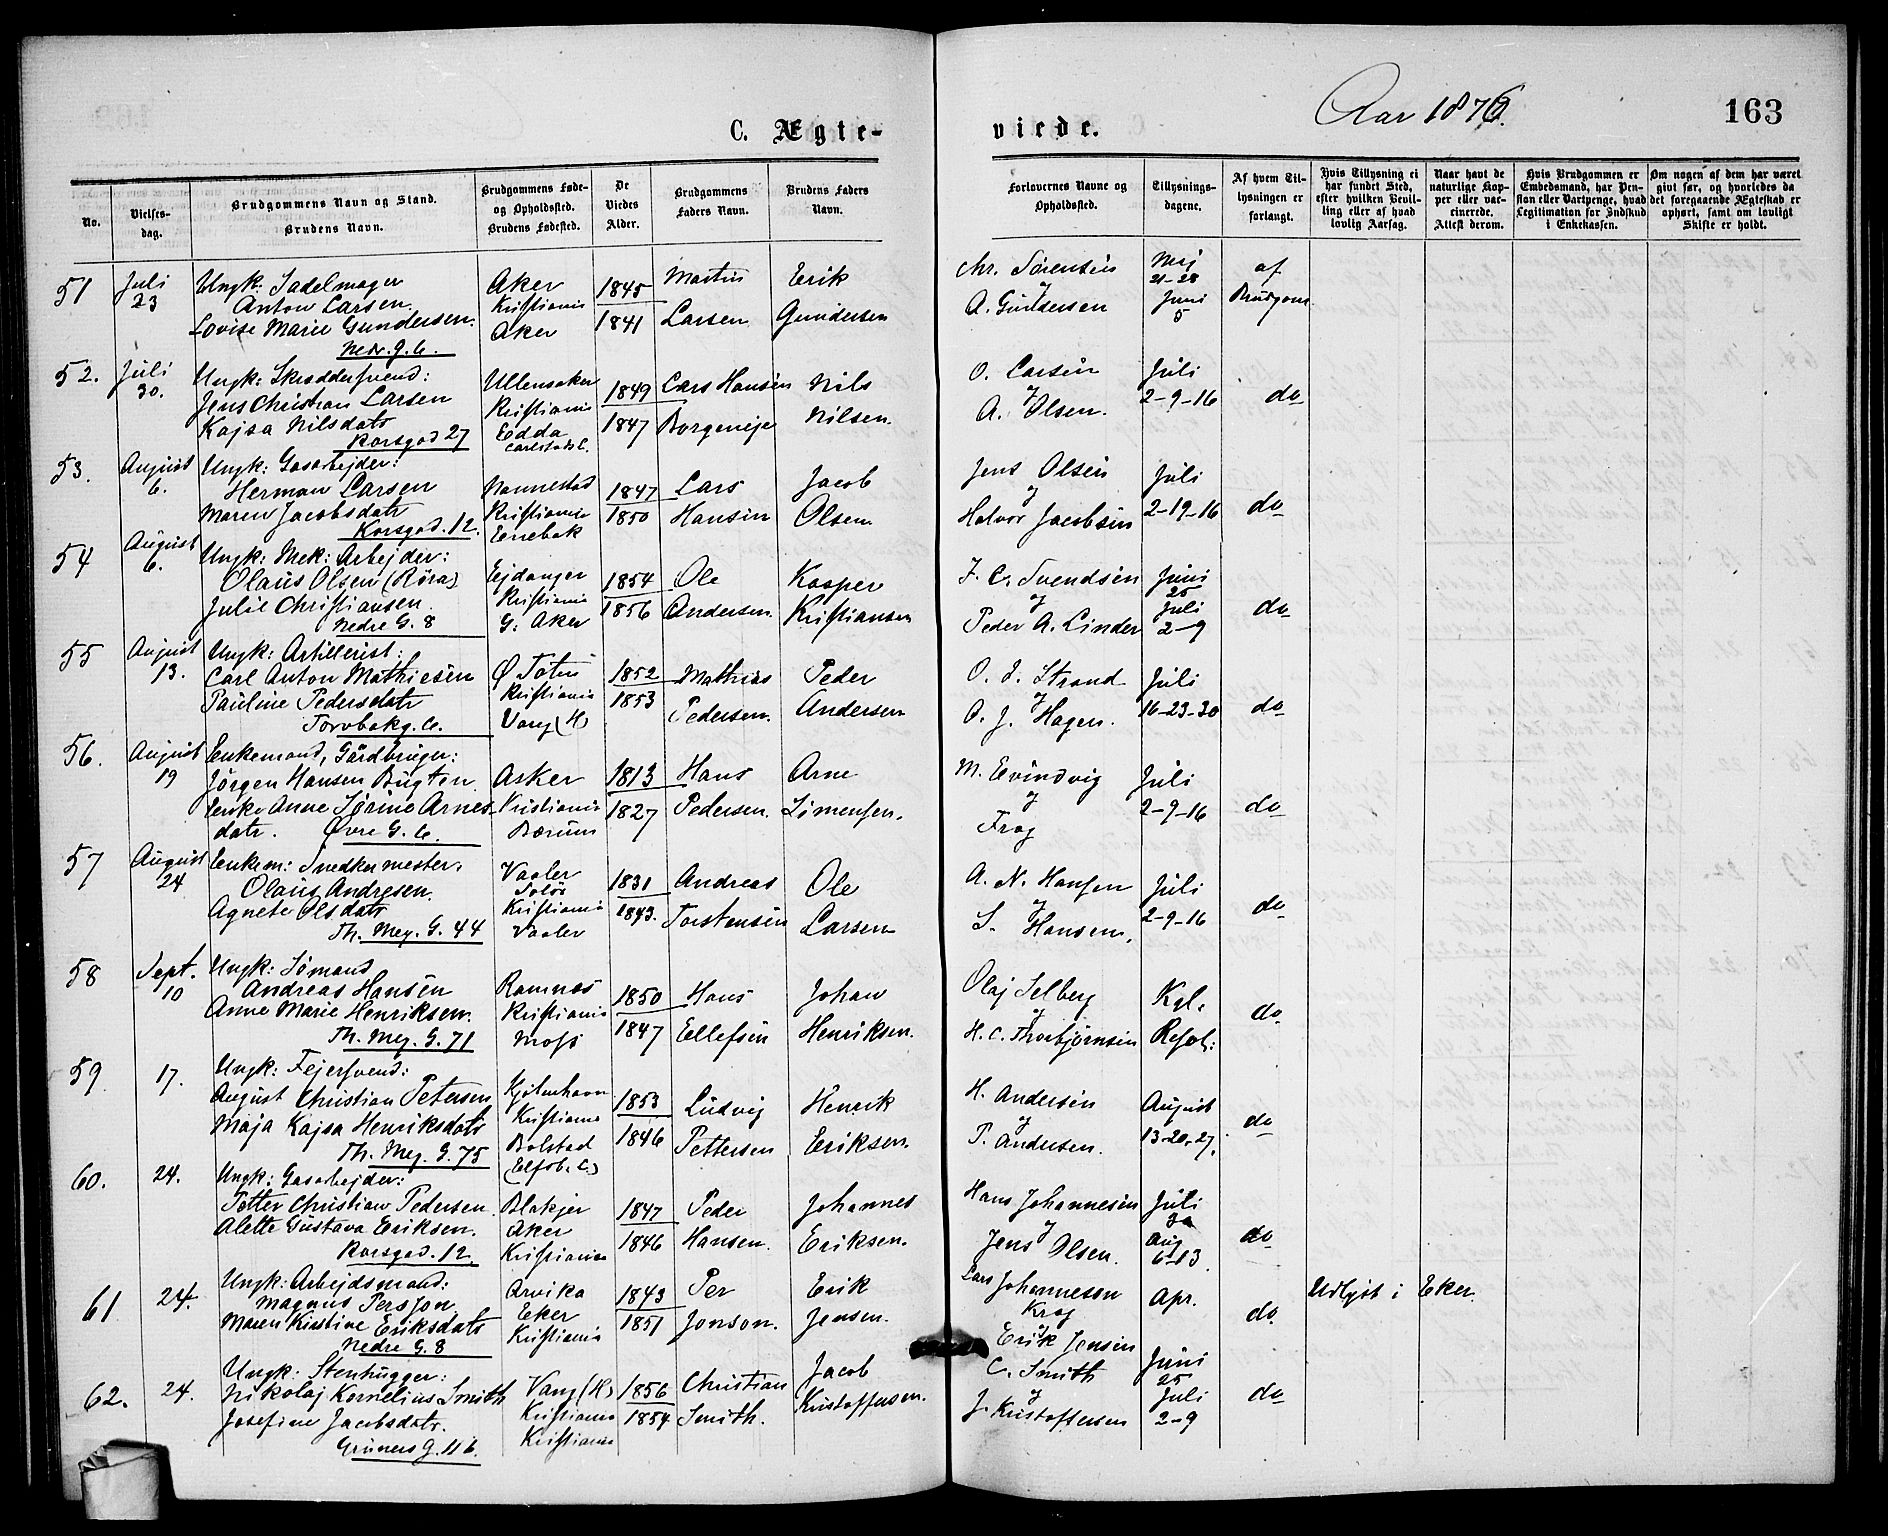 C. Ægte-
viede.
Aar 1876.
163
No.
Vielses-
dag.
Brudgommens Navn og Stand.
Brudens Navn.
Brudgommens Føde-
og Opholdssted.
Brudens Fødested.
De
Viedes
Alder.
Brudgommens
Faders Navn.
Brudens Faders
Navn.
Forlovernes Navne og
Opholdssted.
Tillysnings-
dagene.
Af hvem Til-
lysningen er
forlangt.
Hvis Tillysning ei
har fundet Sted,
efter hvilken Bevil-
ling eller af hvad
lovlig Aarsag.
Naar havt de
naturlige Kop-
per eller vac-
cinerede.
Attest derom.
Hvis Brudgommen er
Embedsmand, har Pen-
sion eller Vartpenge, hvad
Legitimation for Indskud
i Enkekassen.
Om nogen af dem har været
givt før, og hvorledes da
det foregaaende Ægteskab er
ophørt, samt om lovligt
Skifte er holdt.
51
Juli
23
Ungk: Sadelmager
Anton Larsen
Lovise Marie Gundersen.
Nedr. g. 6.
Aker
Kristiania
Aker
1845
1841
Martin
Larsen
Erik
Gundersen
Chr. Sørensen
og
A. Gundersen
Mej
21-28
Juni
5
af
Brudgom.
52.
Juli
30.
Ungk: Skrædersvend:
Jens Christian Larsen
Kajsa Nilsdatr
Korsgad 27
Ullensaker
Kristiania
Edda
Carlstads L.
1849
1847
Lars Hansen
Borgeneje
Nils
Nilsen.
O. Larsen
og
A. Olsen.
Juli
2-9-16
do
53.
August
6.
Ungk: Gasarbejder:
Herman Larsen
Maren Jacobsdatr
Korsgad. 12.
Nannestad
Kristiania
Enebak
1847
1850
Lars
Hansen
Jacob
Olsen
Jens Olsen
og
Halvor Jacobsen
Juli
2-19-16
do
54
August
6.
Ungk: Mek: Arbejder:
Olaus Olsen (Röra)
Julie Christiansen.
Nedre G. 8
Ejdanger
Kristiania
G: Aker
1854
1856
Ole
Andersen.
Kasper
Kristiansen
J. C. Svendsen
og
Peder A. Linder
Juni
25
Juli
2-9
do
55
August
13.
Ungk: Artillerist:
Carl Anton Mathiesen
Pauline Pedersdatr
Torvbakg. 6.
Ø Toten
Kristiania
Vang (H)
1852
1853
Mathias
Pedersen.
Peder
Andersen
O. J. Strand
og
O. J. Hagen.
Juli
16-23-30
do
56.
August
19
Enkemand, Gårdbruger:
Jörgen Hansen Bugten
Enke Anne Sørine Arnes-
datr. Øvre G. 6.
Asker
Kristiania
Bærum
1813
1827
Hans
Pedersen.
Arne
Simensen.
M. Evindvig
og
Frog
Juli
2-9-16
do
57
August
24
Enkem: Snedkermester.
Olaus Andresen.
Agnete Olsdatr
Th. Mey. G. 44
Vaaler
Solør
Kristiania
Vaaler
1831
1843.
Andreas
Torstensen
Ole
Larsen
A. N. Hansen
og
S. Hansen.
Juli
2-9-16
do
58
Sept.
10
Ungk: Sömand
Andreas Hansen
Anne Marie Henriksen.
Th. Mey. G. 71
Ramnæs
Kristiania
Moss
1850
1847
Hans
Ellefsen
Johan
Henriksen.
Olaj Selberg
og
H. C. Thorbjørnsen
Kgl.
Resol:
do
59.
17.
Ungk: Fejersvend:
August Christian Petersen
Maja Kajsa Henriksdatr
Th. Mey. G. 75
Kjöbenhavn
Kristiania
Bolstad
(Elfsb. L.)
1853
1846
Ludvig
Pettersen
Henrik
Eriksen.
H. Andersen
og
P. Andersen.
August
13-20-27.
do
60.
24.
Ungk: Gasarbejder:
Petter Christian Pedersen
Alette Gustava Eriksen.
Korsgad. 12.
Blakjer
Aker
Kristiania
1847
1846
Peder
Hansen.
Johannes
Eriksen.
Hans Johannesen
og
Jens Olsen.
Juli
30
Aug
6-13.
do
61
24.
Ungk: Arbejdsmand:
Magnus Persson
Maren Kirstine Eriksdatr
Nedre G. 8
Arvika
Eker
Kristiania
1843
1851
Per
Jonson.
Erik
Jensen.
Lars Johanneson
Krog
og
Erik Jensen
Apr.
do
Udlyst i Eker.
62.
24.
Ungk: Stenhugger:
Nikolaj Kornelius Smith
Josefine Jacobsdatr.
Grüners g. 11 b.
Vang (H)
Kristiania
Kristiania
1856
1854
Christian
Smith.
Jacob
Kristoffersen.
C. Smith
og
J. Kristoffersen
Juni
25
Juli
2-9
do